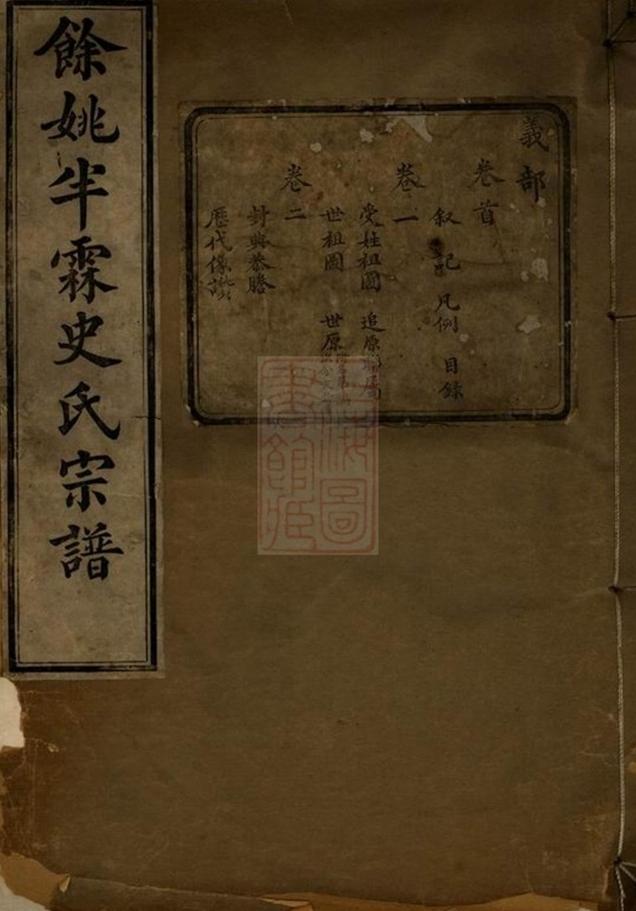 餘姚半霖史氏宗譜
義部
卷首
叙 記 凡例 目錄
卷一
受姓祖圖 追原
世祖圖 世原
卷二
封典恭謄
歷代像讚
上海圖書館藏